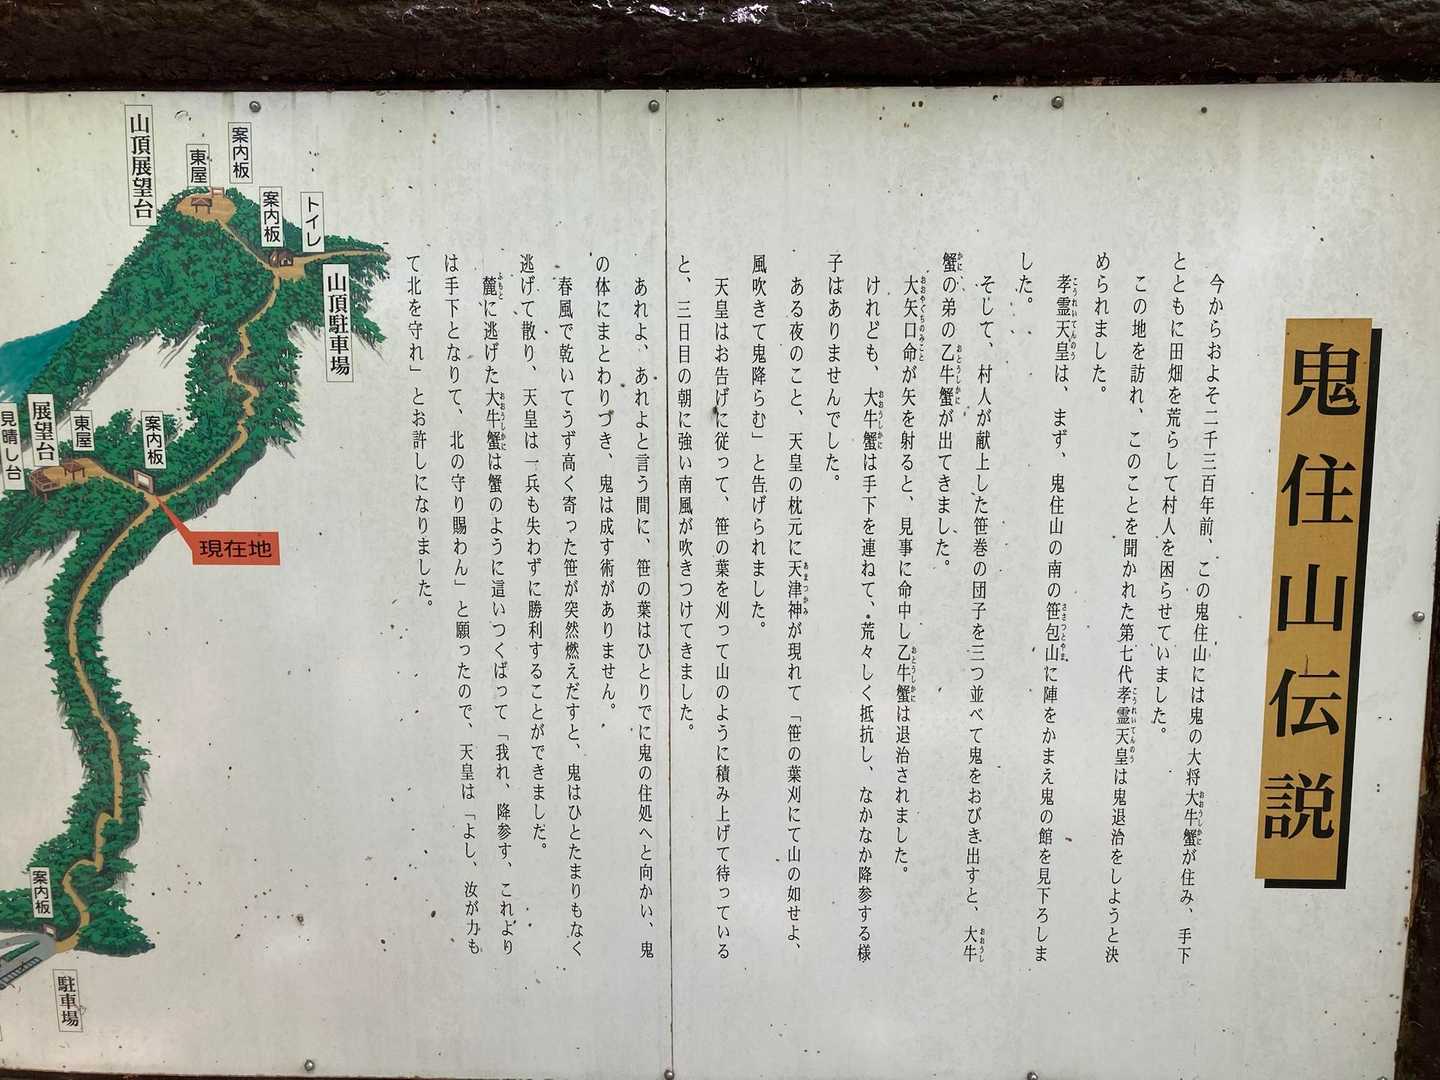 鬼住山伝説
今からおよそ二千三百年前、この鬼住山には鬼の大将大牛蟹が住み、手下
とともに田畑を荒らして村人を困らせていました。
この地を訪れ、このことを聞かれた第七代孝霊天皇は鬼退治をしようと決
められました。
孝霊天皇は、まず、鬼住山の南の笹包山に陣をかまえ鬼の館を見下ろしま
した。
そして、村人が献上した笹巻の団子を三つ並べて鬼をおびき出すと、大牛
蟹の弟の乙牛蟹が出てきました。
大矢口命が矢を射ると、見事に命中し乙牛蟹は退治されました。
けれども、大牛蟹は手下を連ねて、荒々しく抵抗し、なかなか降参する様
子はありませんでした。
ある夜のこと、天皇の枕元に天津神が現れて「笹の葉刈にて山の如せよ、
風吹きて鬼降らむ」と告げられました。
天皇はお告げに従って、笹の葉を刈って山のように積み上げて待っている
と、三日目の朝に強い南風が吹きつけてきました。
あれよ、あれよと言う間に、笹の葉はひとりでに鬼の住処へと向かい、鬼
の体にまとわりつき、鬼は成す術がありません。
春風で乾いてうず高く寄った笹が突然燃えだすと、鬼はひとたまりもなく
逃げて散り、天皇は一兵も失わずに勝利することができました。
麓に逃げた大牛蟹は蟹のように這いつくばって「我れ、降参す、これより
は手下となりて、北の守り賜わん」と願ったので、天皇は「よし、汝が力も
て北を守れ」とお許しになりました。
山頂展望台
東屋
案内板
案内板
トイレ
山頂駐車場
見晴し台
展望台
東屋
案内板
現在地
案内板
駐車場